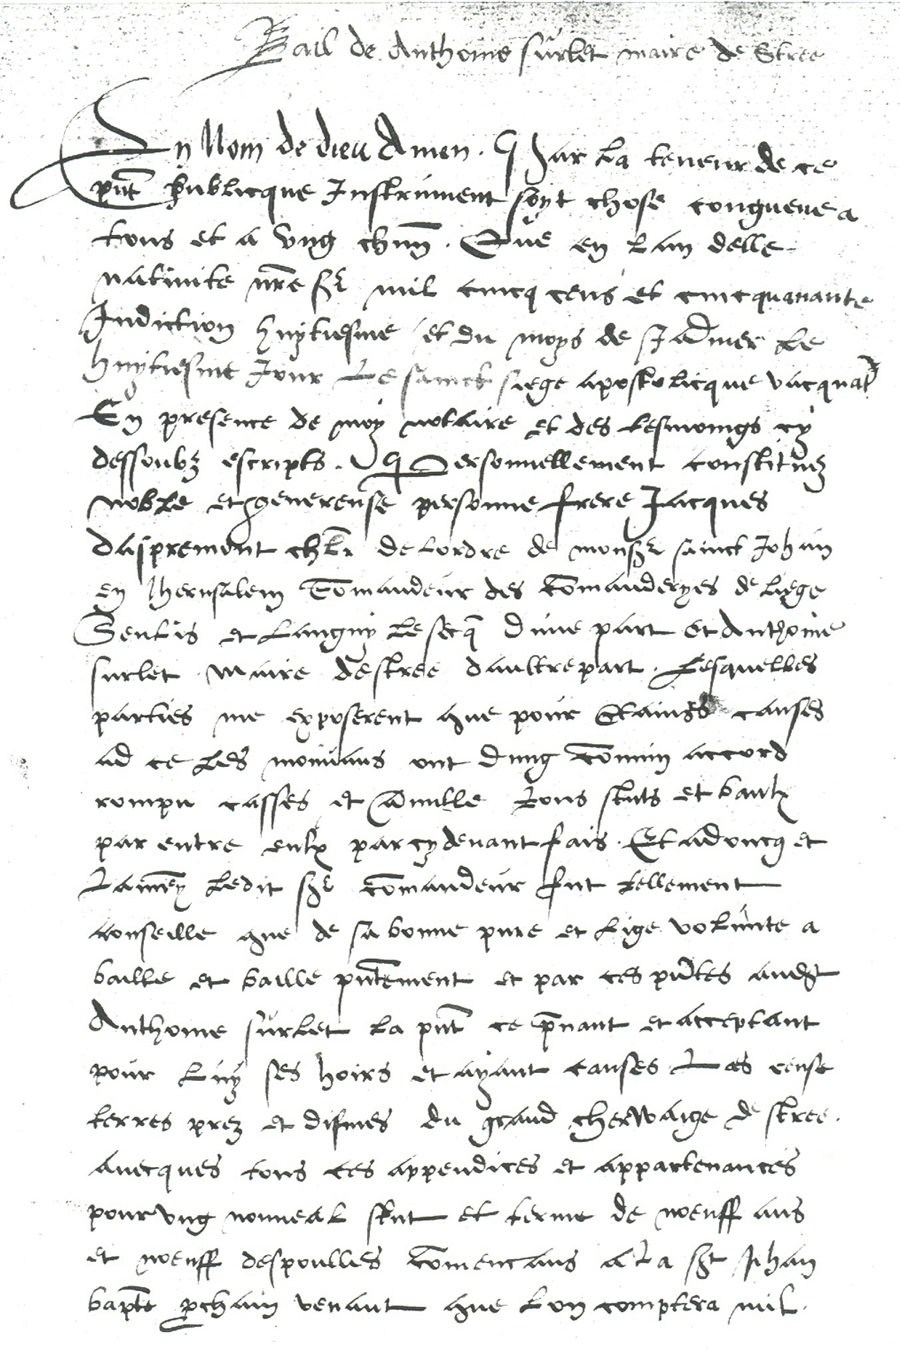 Bail de Anthoine surlet maire de Stree
En Nom de dieu Amen. Par la teneur de ce
pnt publicque Instrument soyt chose congneue a
tous et a ung chun. Que en lan delle
nativite nre sr mil cincq cens et cincquanante
Indiction huytiesme et du moys de Janvier le
huytiesme Jour Le sainct siege apostolicque vacquat
En presence de moy notaire et des tesmoings cy
dessoubz escripts. Personnellement constituez
noble et generense personne frere Jacques
daspremont chlr de lordre de monsr sainct Johan
en Jherusalem Comandeur des comanderyes de liege
Senlis et Languy le secq dune part et Anthoine
surlet maire de stree daultre part. Lesquelles
parties me exposerent que pour certaines causes
ad ce les movans ont dung comun accord
rompu casses et anulle tous stuts et baulx
par entre eulx par cy devant fais. Et adoncq et
ledit sr comandeur fut tellement
conseille que de sa bonne pure et lige volunte a
baille et baille pntement et par ces pntes audit
Anthoine surlet la pnt ce pnant et acceptant
pour luy ses hoirs et ayant causes Les cense
terres prez et dismes du grand cherwaige de stree.
avecques tous ces appendices et appartenances
pour ung nouveal stut et terme de noeuff ans
et noeuff despoulles comencans a la st Jehan
bapte pchain venant que lon comptera mil.